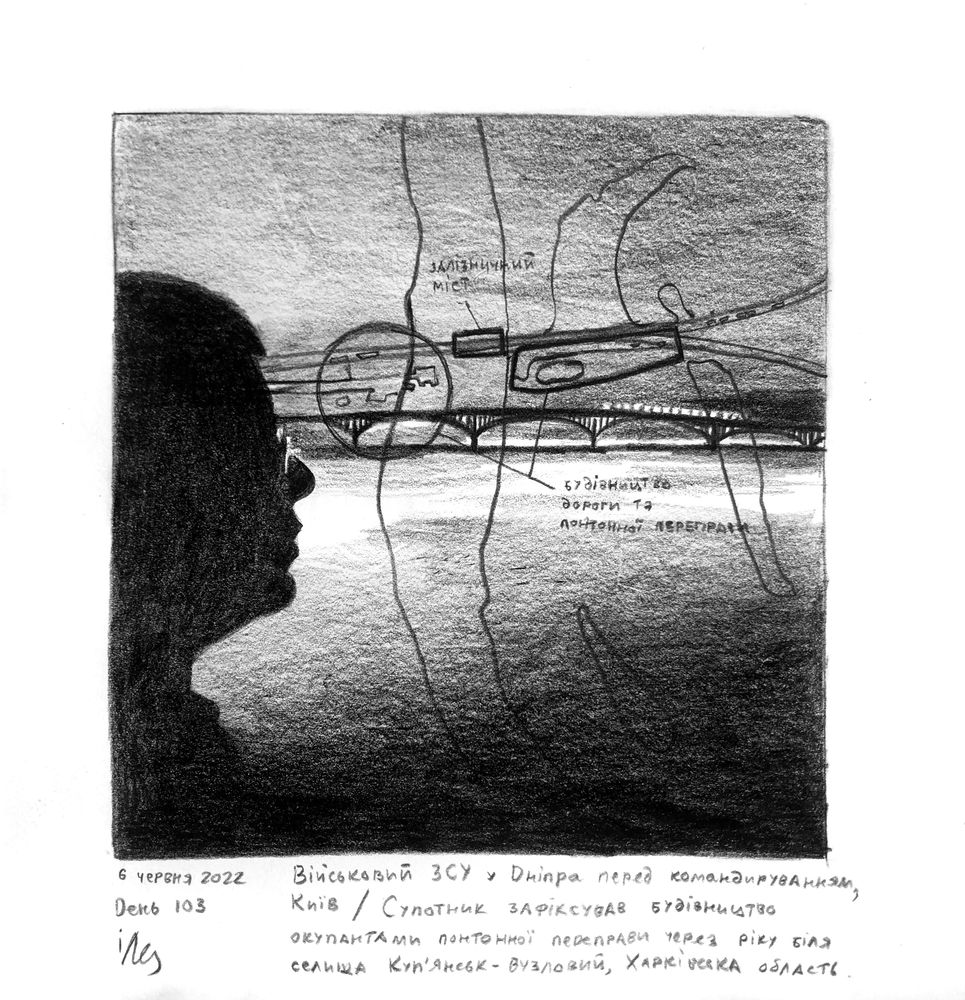 ЗАЛІЗНИЧНИЙ
МІСТ
БУДІВНИЦТВО
ДОРОГИ ТА
ПОНТОННОЇ ПЕРЕПРАВИ
6 ЧЕРВНЯ 2022
День 103
Військовий ЗСУ у Дніпра перед командируванням,
Київ / Супутник зафіксував будівництво
окупантами понтонної переправи через ріку біля
селища Куп'янськ-Вузловий, Харківська область.